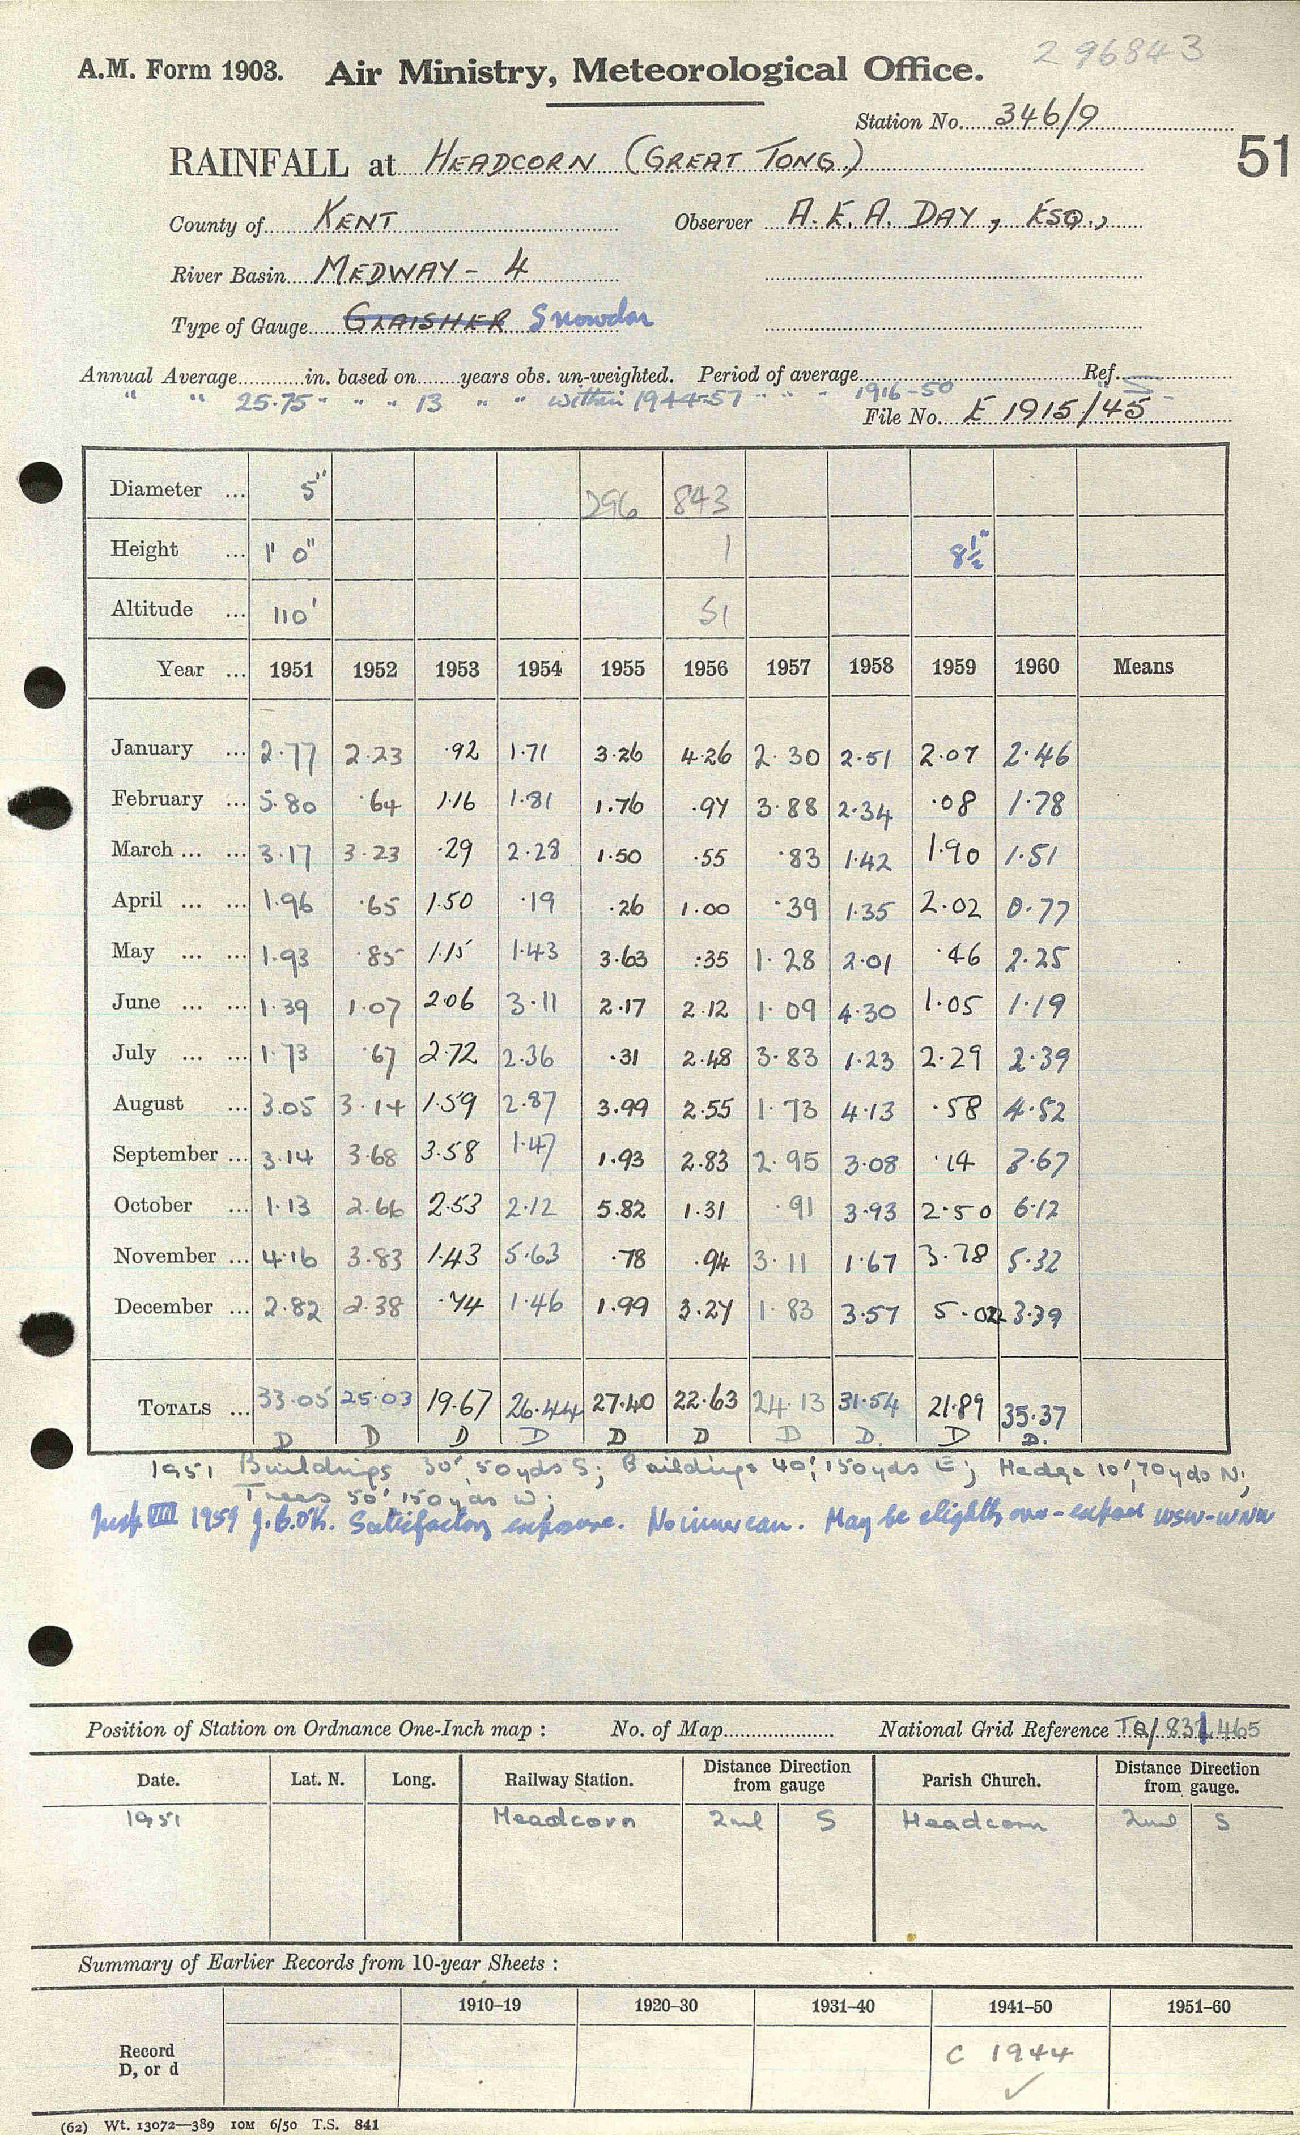 296843
A.M. Form 1903. Air Ministry, Meteorological Office.
Station No. 346/9
51
RAINFALL at HEADCORN (GREAT TONG.)
County of KENT Observer A.E.A. DAY, ESQ.,
River Basin MEDWAY - 4
Type of Gauge GLAISHER Snowdon
Annual Average in. based on years obs. un-weighted. Period of average Ref.
" " 25.75 " " " 13 " " within 1944-57 " " " 1916-50
File No. E 1915/45
Diameter ... 5" 296 843
Height ... 1' 0" 1 8½"
Altitude ... 110' 51
Year ... 1951 1952 1953 1954 1955 1956 1957 1958 1959 1960 Means
January ... 2.77 2.23 .92 1.71 3.26 4.26 2.30 2.51 2.07 2.46
February ... 5.80 .64 1.16 1.81 1.76 .97 3.88 2.34 .08 1.78
March ... ... 3.17 3.23 .29 2.28 1.50 .55 .83 1.42 1.90 1.51
April ... ... 1.96 .65 1.50 .19 .26 1.00 .39 1.35 2.02 0.77
May ... ... 1.93 .85 1.15 1.43 3.63 .35 1.28 2.01 .46 2.25
June ... ... 1.39 1.07 2.06 3.11 2.17 2.12 1.09 4.30 1.05 1.19
July ... ... 1.73 .67 2.72 2.36 .31 2.48 3.83 1.23 2.29 2.39
August ... 3.05 3.14 1.59 2.87 3.99 2.55 1.73 4.13 .58 4.52
September ... 3.14 3.68 3.58 1.47 1.93 2.83 2.95 3.08 .14 3.67
October ... 1.13 2.66 2.53 2.12 5.82 1.31 .91 3.93 2.50 6.12
November ... 4.16 3.83 1.43 5.63 .78 .94 3.11 1.67 3.78 5.32
December ... 2.82 2.38 .74 1.46 1.99 3.27 1.83 3.57 5.02 3.39
TOTALS ... 33.05 25.03 19.67 26.44 27.40 22.63 24.13 31.54 21.89 35.37
D D D D D D D D. D D.
1951 Buildings 30', 50yds S; Buildings 40', 150yds E; Hedge 10', 70yds N;
Trees 50' 150yds W;
Insp VIII 1959 J.G.O'K. Satisfactory exposure. No inner can. May be slightly over-exposed WSW-WNW
Position of Station on Ordnance One-Inch map : No. of Map National Grid Reference TQ/831465
Date. Lat. N. Long. Railway Station. Distance Direction from gauge Parish Church. Distance Direction from gauge.
1951 Headcorn 2ml S Headcorn 2ml S
Summary of Earlier Records from 10-year Sheets :
1910–19 1920–30 1931–40 1941–50 1951–60
Record
D, or d
C 1944
✓
(62) Wt. 13072—389 10M 6/50 T.S. 841